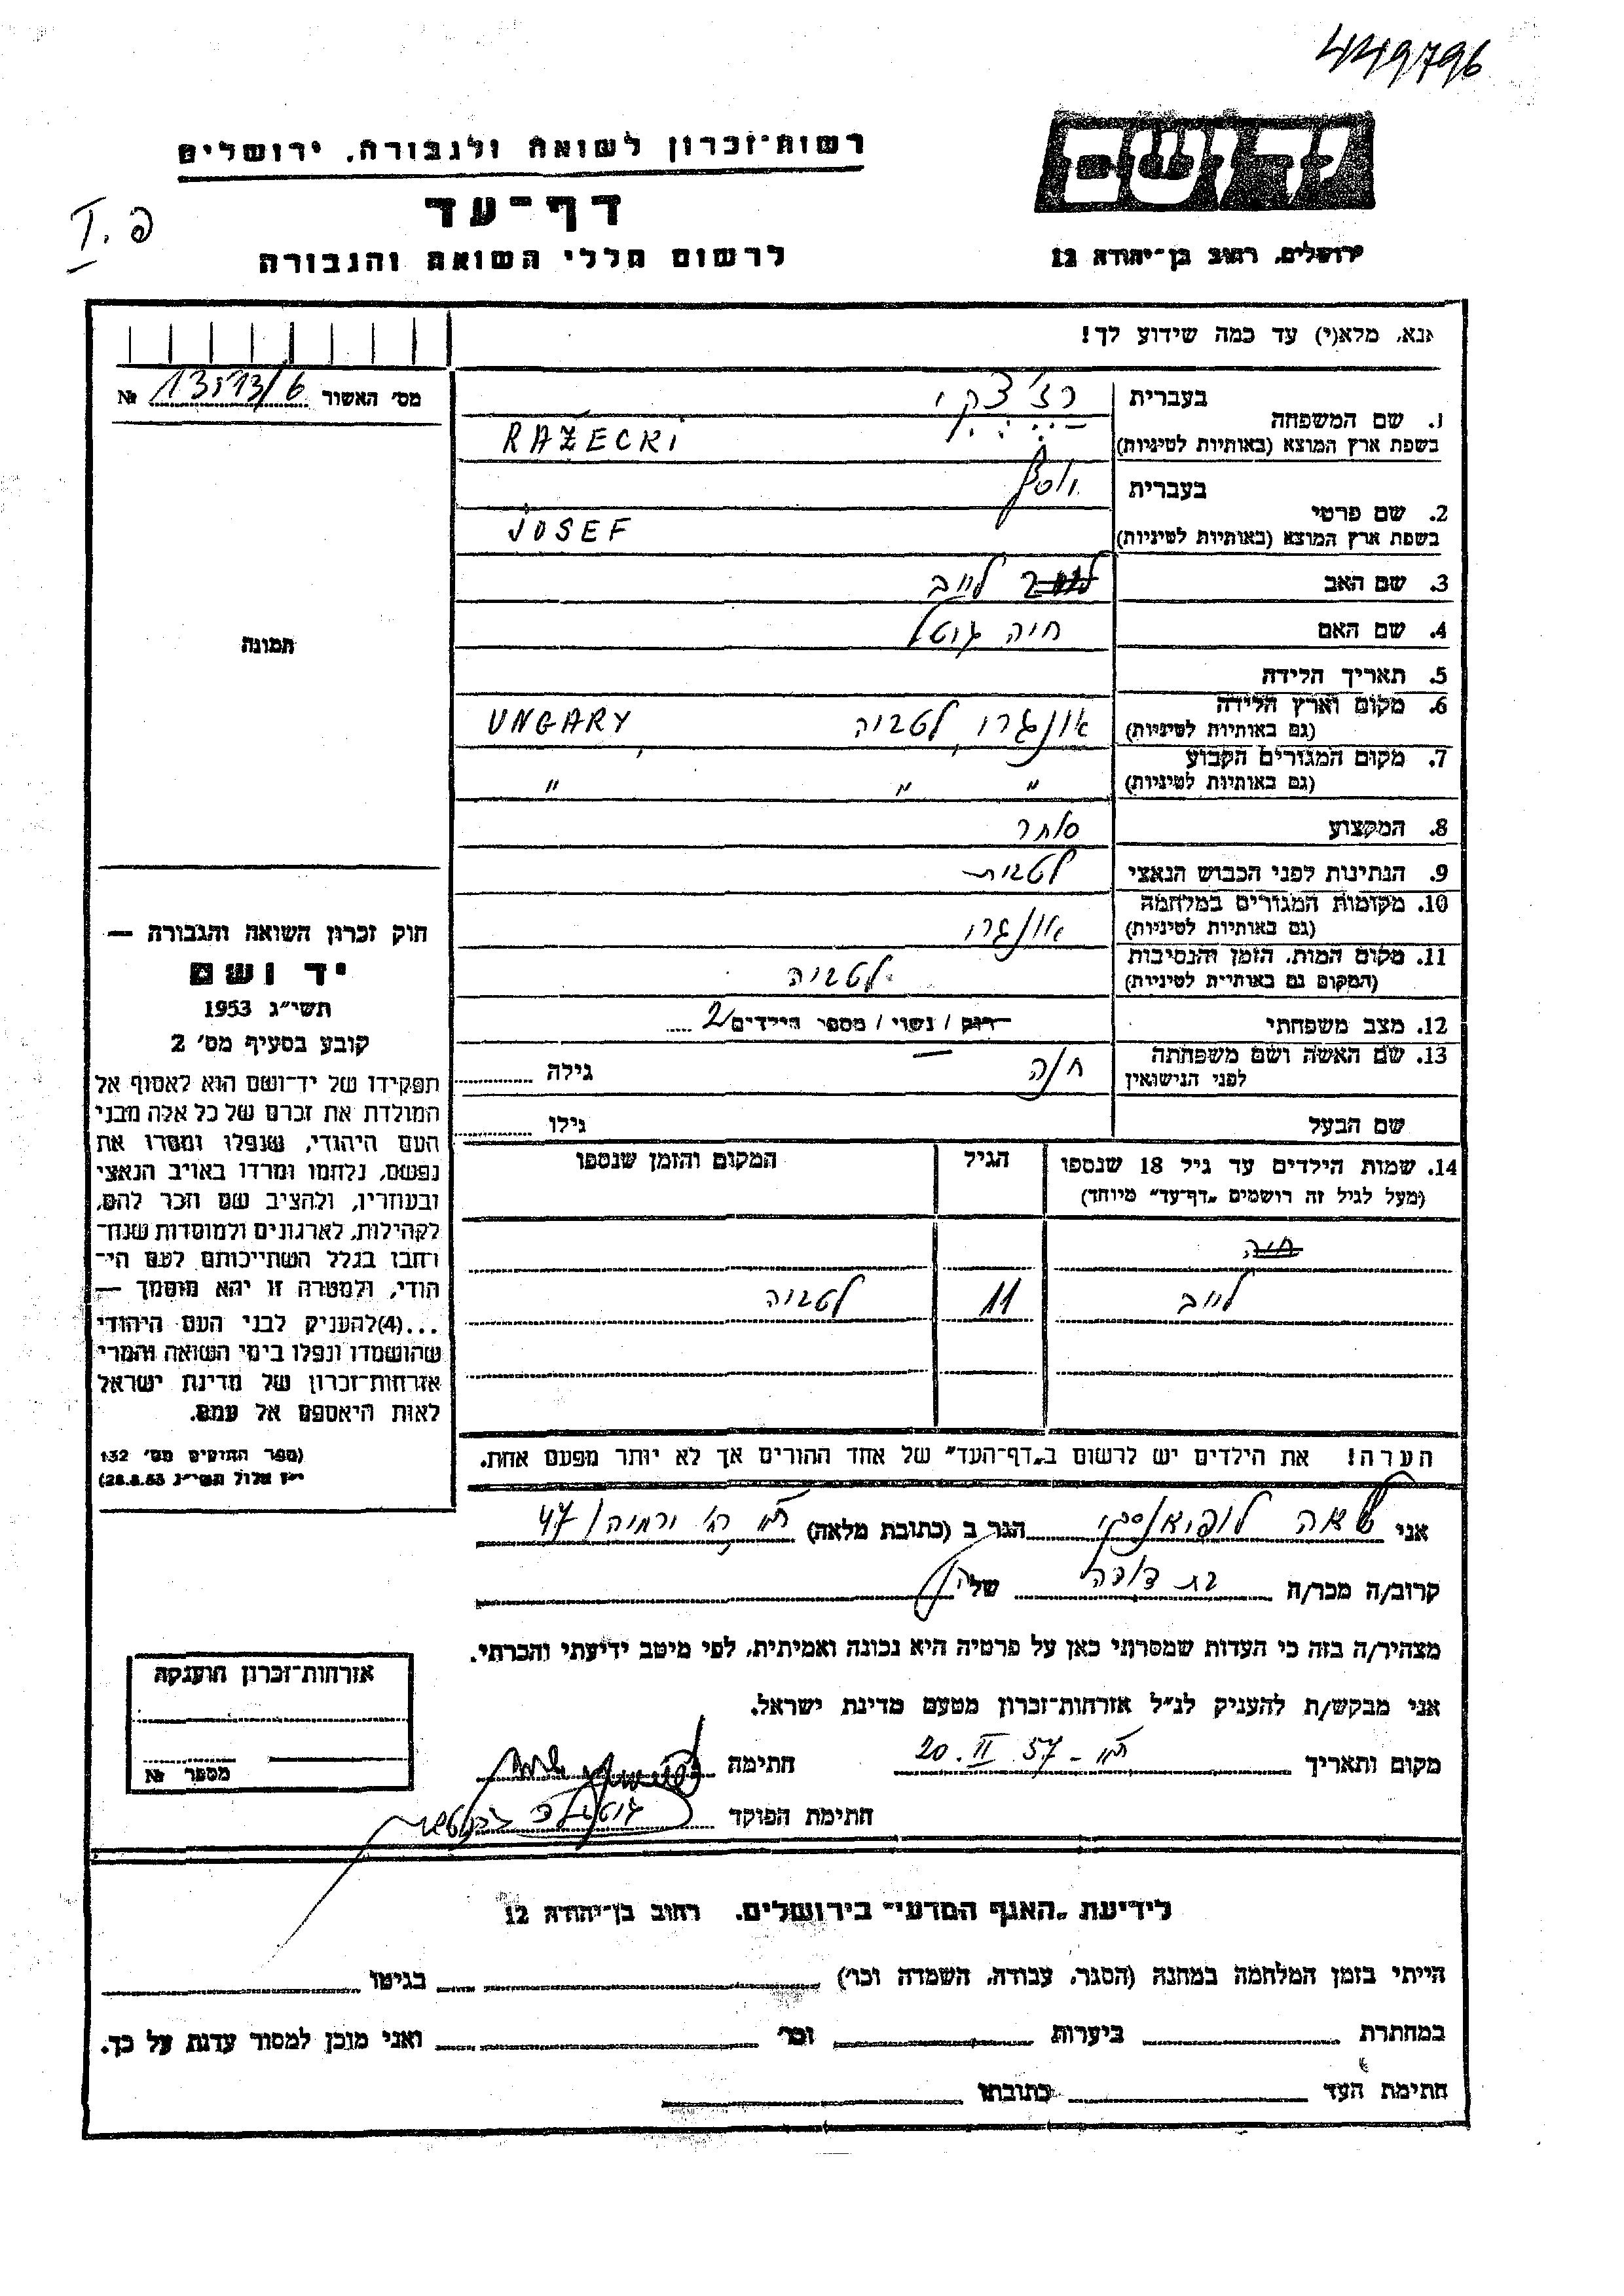 449796
יד ושם
רשות־זכרון לשואה ולגבורה, ירושלים
דף־עד
פ. I
לרשום חללי השואה והגבורה
ירושלים, רחוב בן־יהודה 12
אנא, מלא(י) עד כמה שידוע לך!
מס׳ האשור № 13573/6
תמונה
1. שם המשפחה בעברית רז׳צקי
בשפת ארץ המוצא (באותיות לטיניות) RAŻECKI
2. שם פרטי בעברית יוסף
בשפת ארץ המוצא (באותיות לטיניות) JOSEF
3. שם האב לייב
4. שם האם חיה גוטל
5. תאריך הלידה
6. מקום וארץ הלידה אונגרו, לטביה UNGARY
(גם באותיות לטיניות)
7. מקום המגורים הקבוע
(גם באותיות לטיניות) " " "
8. המקצוע סוחר
9. הנתינות לפני הכבוש הנאצי לטבית
10. מקומות המגורים במלחמה אונגרו
(גם באותיות לטיניות)
11. מקום המות, הזמן והנסיבות לטביה
(המקום גם באותיית לטיניות)
12. מצב משפחתי רוק / נשוי / מספר הילדים 2
13. שם האשה ושם משפחתה לפני הנישואין חיה גילה
שם הבעל גילו
14. שמות הילדים עד גיל 18 שנספו הגיל המקום והזמן שנספו
(מעל לגיל זה רושמים „דף־עד" מיוחד)
חיה
לייב 11 לטביה
הערה! את הילדים יש לרשום ב„דף־העד" של אחד ההורים אך לא יותר מפעם אחת.
חוק זכרון השואה והגבורה —
יד ושם
תשי״ג 1953
קובע בסעיף מס׳ 2
תפקידו של יד־ושם הוא לאסוף אל
המולדת את זכרם של כל אלה מבני
העם היהודי, שנפלו ומסרו את
נפשם, נלחמו ומרדו באויב הנאצי
ובעוזריו, ולהציב שם וזכר להם,
לקהילות, לארגונים ולמוסדות שנח־
רחבו בגלל השתייכותם לעם הי־
הודי, ולמטרה זו יהא מוסמך —
...(4)להעניק לבני העם היהודי
שהושמדו ונפלו בימי השואה והמרי
אזרחות־זכרון של מדינת ישראל
לאות היאספם אל עמם.
(ספר החוקים מס׳ 132
י״ז אלול תשי״ג 28.8.53)
אני לופיאנסקי הגר ב (כתובת מלאה) ירמיהו 47
קרוב/ה מכר/ה בת דודה של
מצהיר/ה בזה כי העדות שמסרתי כאן על פרטיה היא נכונה ואמיתית, לפי מיטב ידיעתי והכרתי.
אני מבקש/ת להעניק לנ״ל אזרחות־זכרון מטעם מדינת ישראל.
מקום ותאריך ת״א - 20. II 57 חתימה
חתימת הפוקד
אזרחות־זכרון הוענקה
מספר №
לידיעת „האגף המדעי" בירושלים, רחוב בן־יהודה 12
הייתי בזמן המלחמה במחנה (הסגר, עבודה, השמדה וכו׳) בגיטו
במחתרת ביערות וכו׳ ואני מוכן למסור עדות על כך.
חתימת העד כתובתו